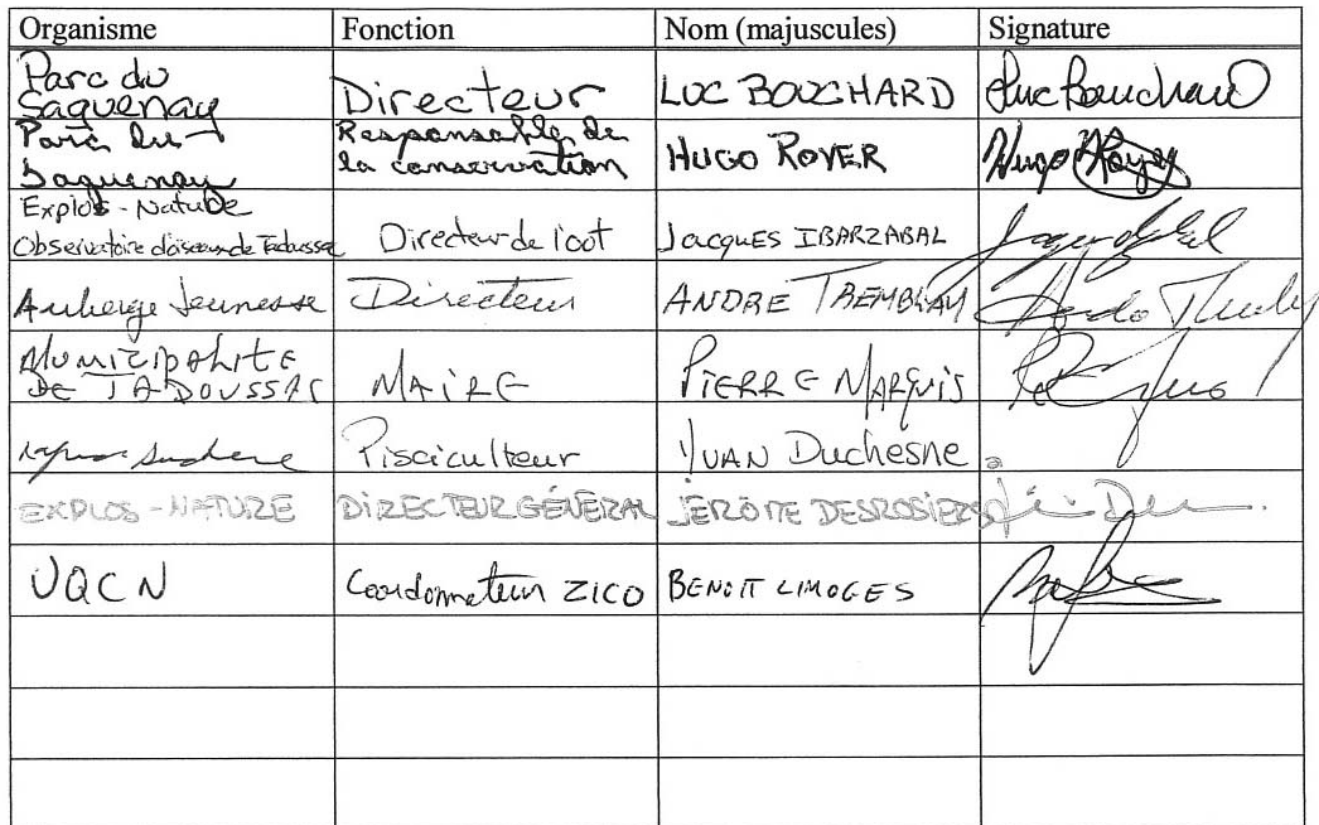 Organisme Fonction Nom (majuscules) Signature
Parc du
Saguenay Directeur LUC BOUCHARD Luc Bouchard
Parc du
Saguenay Responsable de
la conservation HUGO ROYER Hugo Royer
Explos-Nature
Observatoire d'oiseaux de Tadoussac Directeur de l'oot Jacques IBARZABAL
Auberge Jeunesse Directeur ANDRE TREMBLAY
MUNICIPALITE
DE TADOUSSAC MAIRE PIERRE MARQUIS
Pisciculteur YVAN Duchesne
EXPLOS-NATURE DIRECTEUR GÉNÉRAL JÉRÔME DESROSIERS
UQCN Coordonnateur ZICO BENOIT LIMOGES